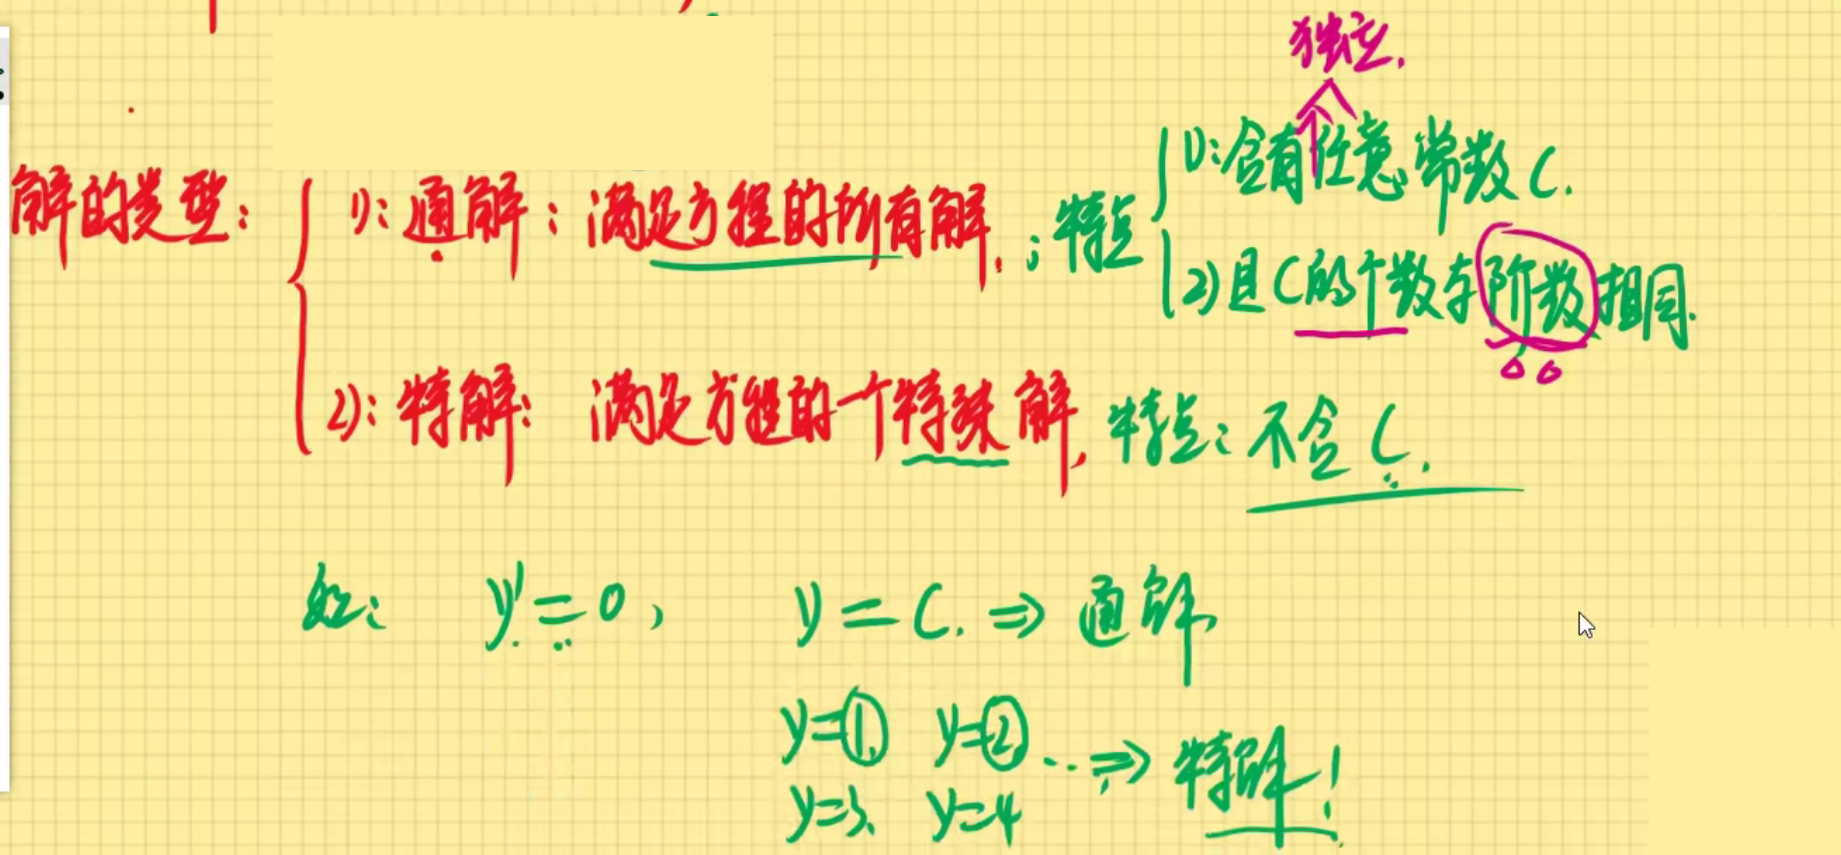 独立.
1):含有任意常数C.
解的类型: 1):通解:满足方程的所有解.;特点
2)且C的个数与阶数相同.
2):特解:满足方程的一个特殊解,特点:不含C.
如: y'=0, y=C.⇒通解
y=1, y=2, ...⇒特解!
y=3, y=4